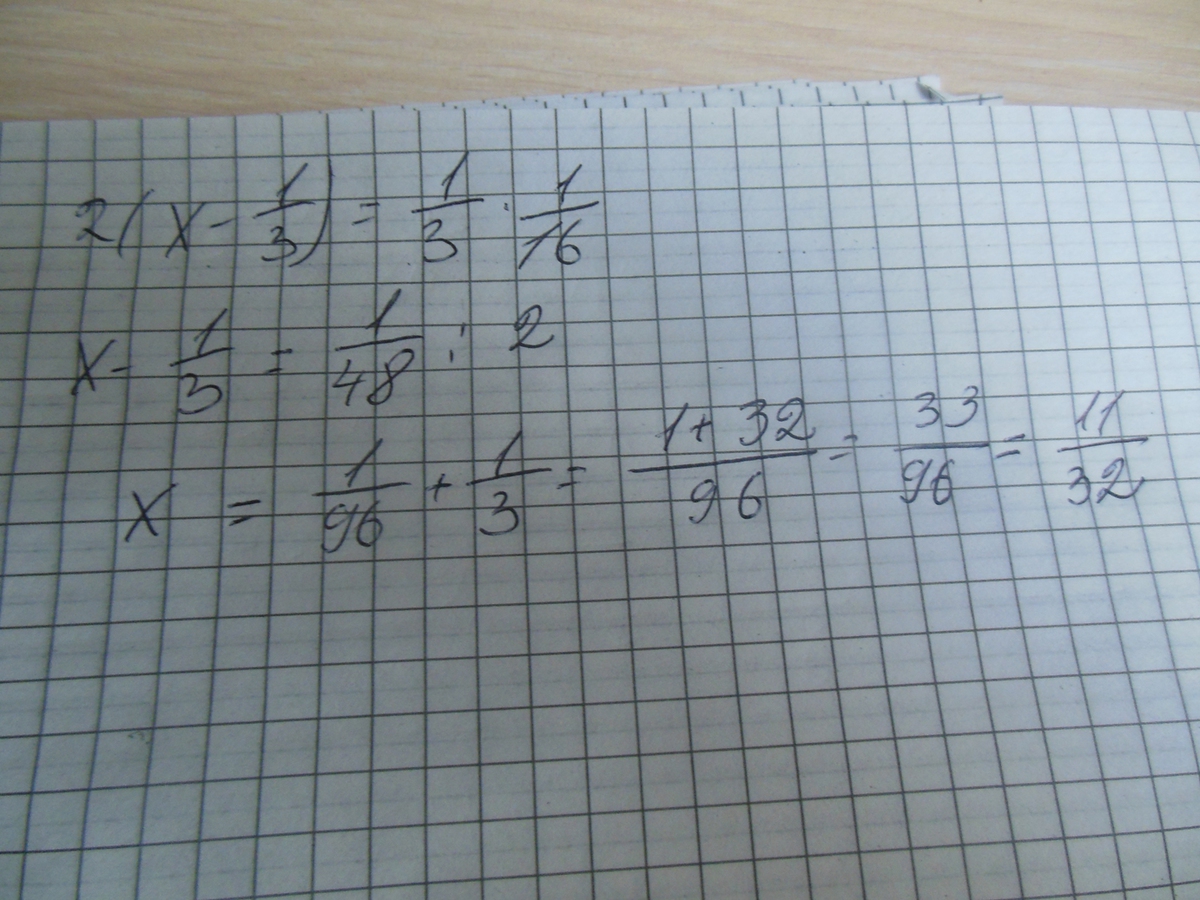 2(x - 1/3) = 1/3 · 1/16
x - 1/3 = 1/48 : 2
x = 1/96 + 1/3 = (1 + 32)/96 = 33/96 = 11/32